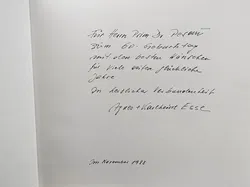 Für Herrn Prim. Dr.
zum 60. Geburtstag
mit den besten Wünschen
für viele weitere glückliche
Jahre
In herzlicher Verbundenheit
Agnes + Karlheinz Esse
Im November 19